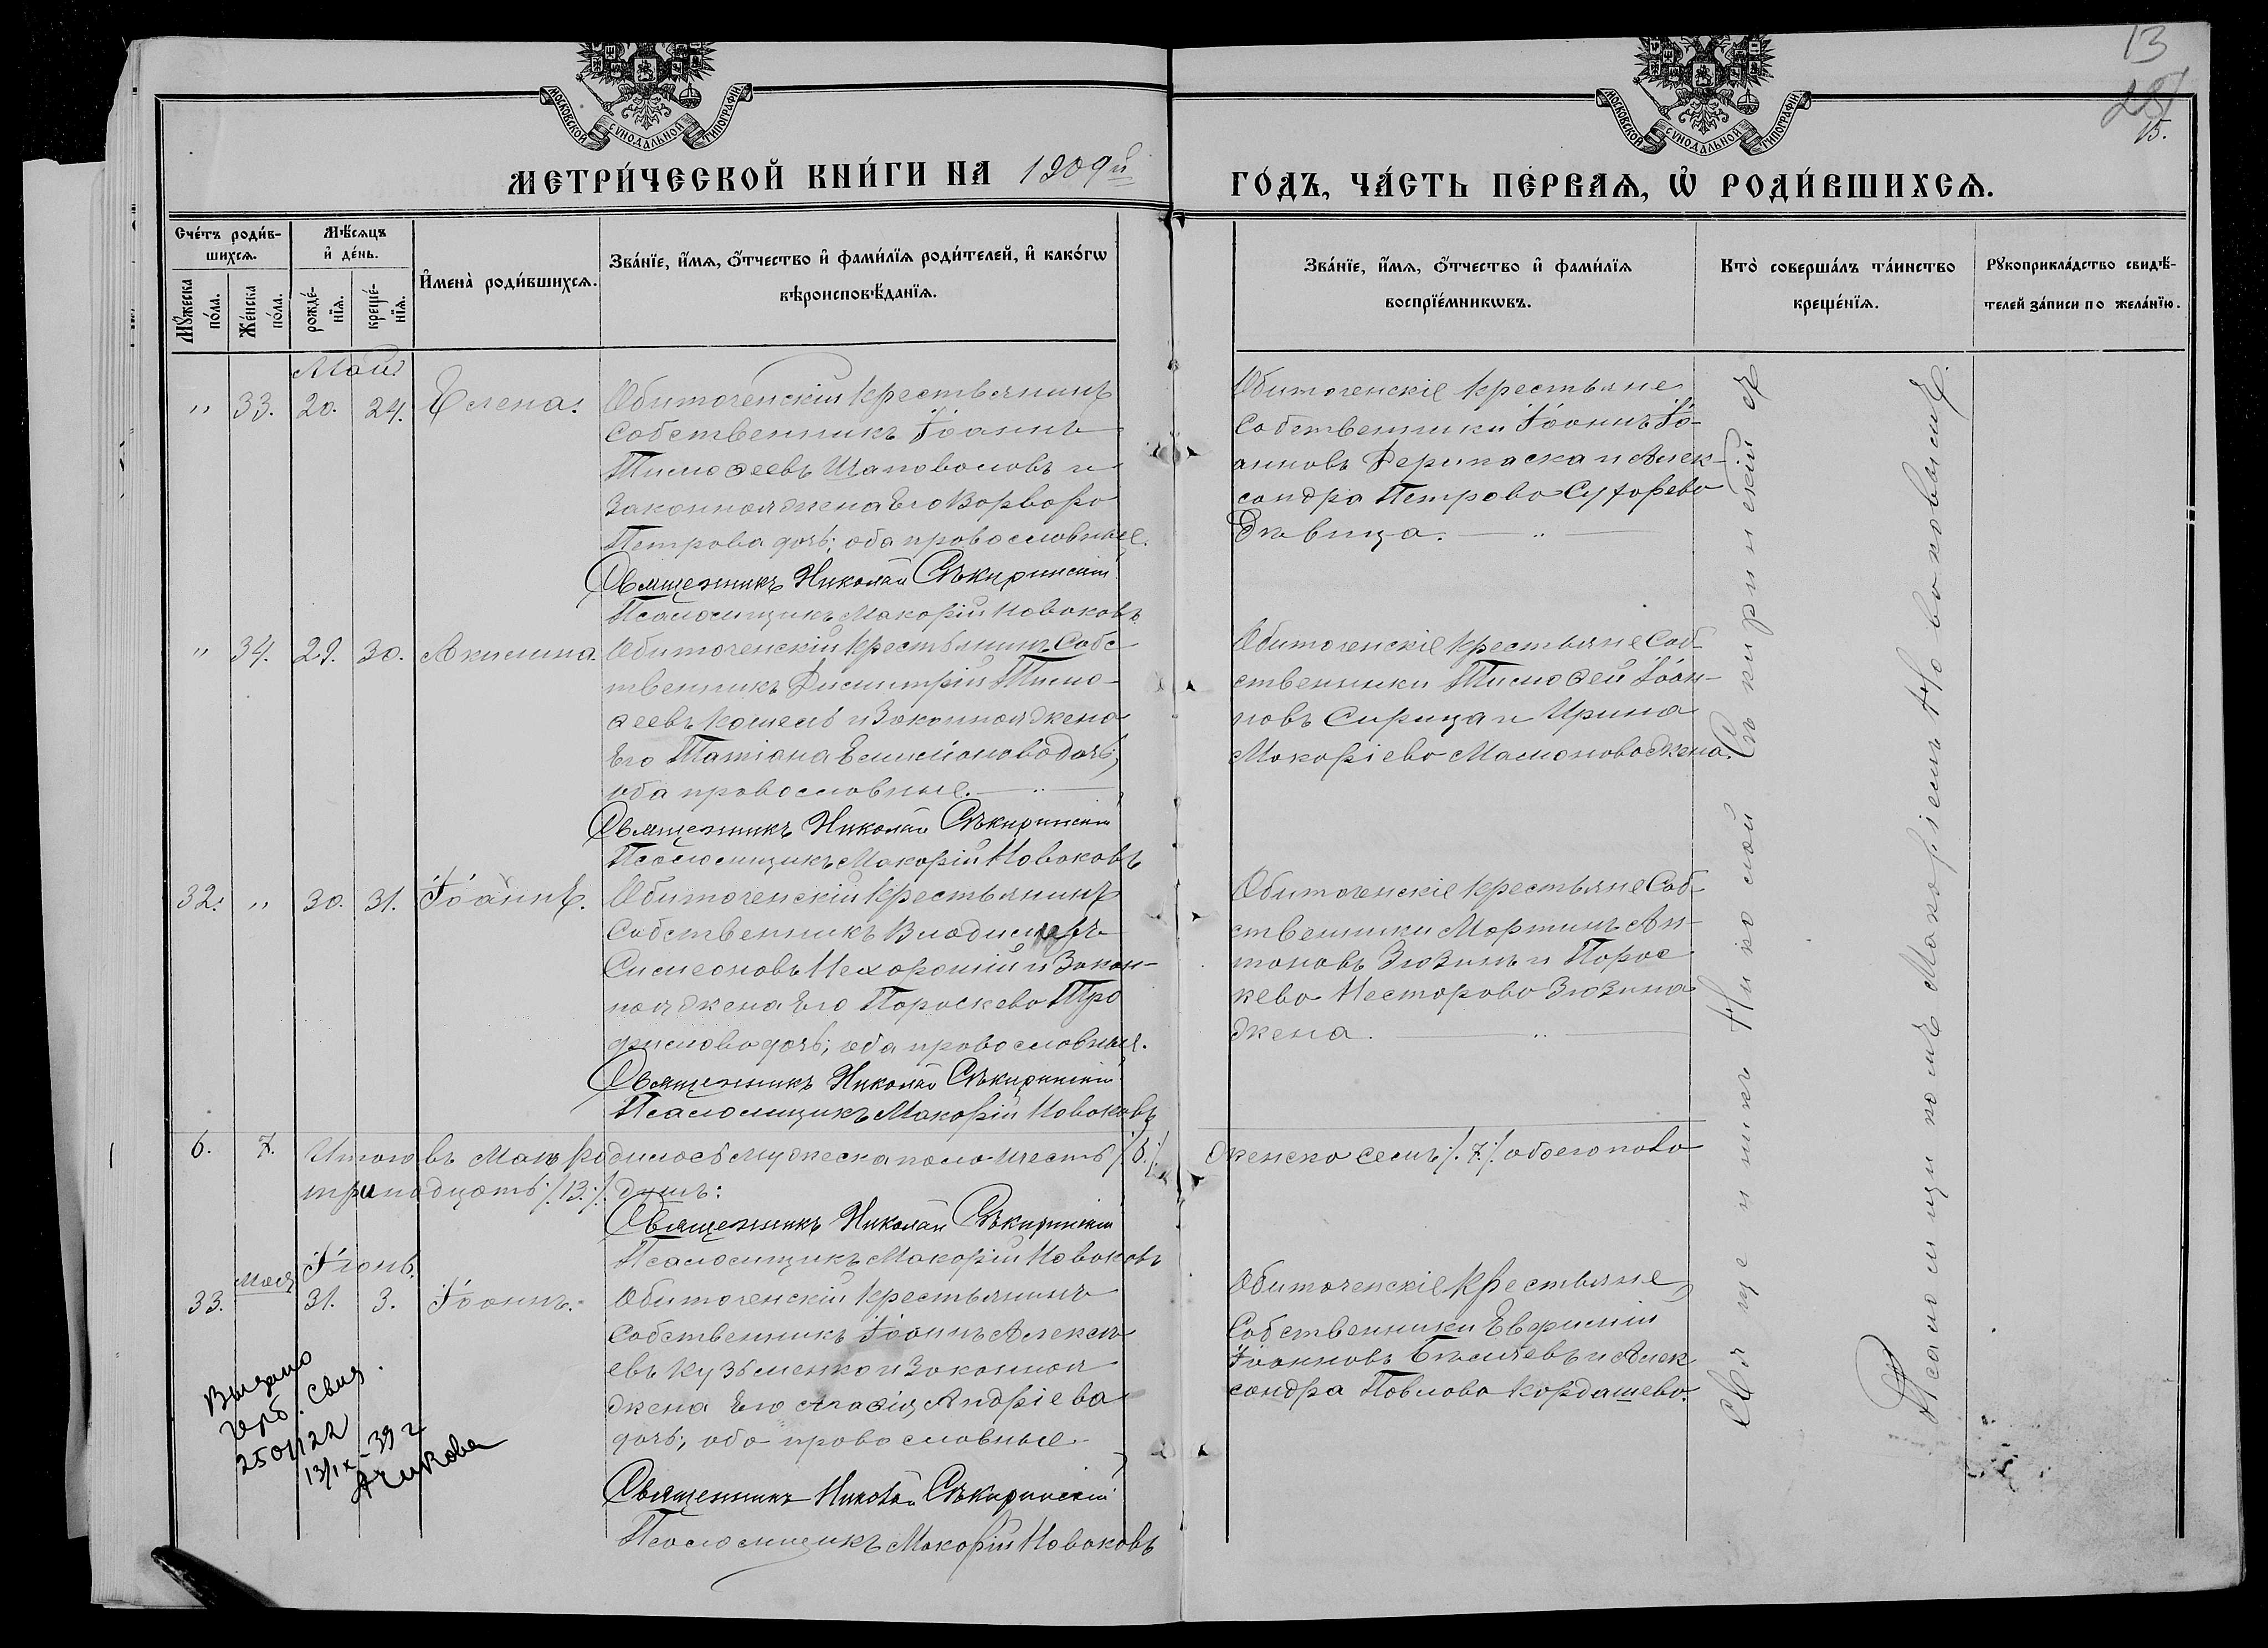 13
287
15.
МОСКОВСКОЙ СѴНОДАЛЬНОЙ ТИПОГРАФІИ
МОСКОВСКОЙ СѴНОДАЛЬНОЙ ТИПОГРАФІИ
МЕТРИ́ЧЕСКОЙ КНИ́ГИ НА 1909й
ГО́ДЪ, ЧА́СТЬ ПЕ́РВАЯ, Ѿ РОДИ́ВШИХСЯ.
Сче́тъ роди́вшихся.
Мꙋ́жеска по́ла.
Же́нска по́ла.
Мѣ́сяцъ и҆ де́нь.
рожде́нїя.
креще́нїя.
И҆мена̀ роди́вшихся.
Зва́нїе, и҆́мя, ѻ҆́тчество и҆ фами́лїя роди́телей, и҆ како́гѡ
вѣроисповѣ́данїя.
Зва́нїе, и҆́мя, ѻ҆́тчество и҆ фами́лїя
воспрїе́мникѡвъ.
Кто̀ соверша́лъ та́инство
креще́нїя.
Рꙋкоприкла́дство свидѣ́-
телей за́писи по жела́нїю.
Май
" 33. 20. 24. Елена.
Обиточенскій крестьянинъ
Собственникъ Іоаннъ
Тимоѳеевъ Шаповаловъ и
Законная жена Его Варвара
Петрова дочь; оба православные.
Священникъ Николай Сѣкиринскій
Псаломщикъ Макарій Новаковъ
Обиточенскіе крестьяне
Собственники Іоаннъ Іо-
анновъ Дерипаска и Алек-
сандра Петрова Сухарева
дѣвица.
" 34. 29. 30. Акилина.
Обиточенскій крестьянинъ Собс
твенникъ Димитрій Тимо-
ѳеевъ Кошель и Законная жена
Его Татіана Емиліанова дочь;
оба православные.
Священникъ Николай Сѣкиринскій
Псаломщикъ Макарій Новаковъ
Обиточенскіе крестьяне Соб
ственники Тимоѳей Іоан-
новъ Сирица и Ирина
Макаріева Мамонова жена.
32. " 30. 31. Іоаннъ.
Обиточенскій крестьянинъ
Собственникъ Владимиръ
Симеоновъ Нехорошій и Закон-
ная жена Его Параскева Тро
фимова дочь; оба православные.
Священникъ Николай Сѣкиринскій
Псаломщикъ Макарій Новаковъ
Обиточенскіе крестьяне Соб
ственники Мартинъ Ан-
тоновъ Зюзинъ и Парас
кева Нестерова Зюзина
жена.
6. 7. Итого въ Маѣ родилось мужеска пола шесть /.6./. женска семь /.7./. обоего пола
тринадцать /.13./. душъ:
Священникъ Николай Сѣкиринскій
Псаломщикъ Макарій Новаковъ
Іюнь.
Мая
33. 31. 3. Іоаннъ.
Обиточенскій крестьянинъ
Собственникъ Іоаннъ Алексѣ
евъ Кузьменко и Законная
жена Его Агаѳія Андріева
дочь; оба православные
Священникъ Николай Сѣкиринскій
Псаломщикъ Макарій Новаковъ
Обиточенскіе Крестьяне
Собственники Евфимій
Іоанновъ Бѣляевъ и Алек
сандра Павлова Кардашева.
Выдано
герб. свид.
250422
13/IX-39 г
Священникъ Николай Сѣкиринскій съ
Псаломщикомъ Макаріемъ Новаковымъ.